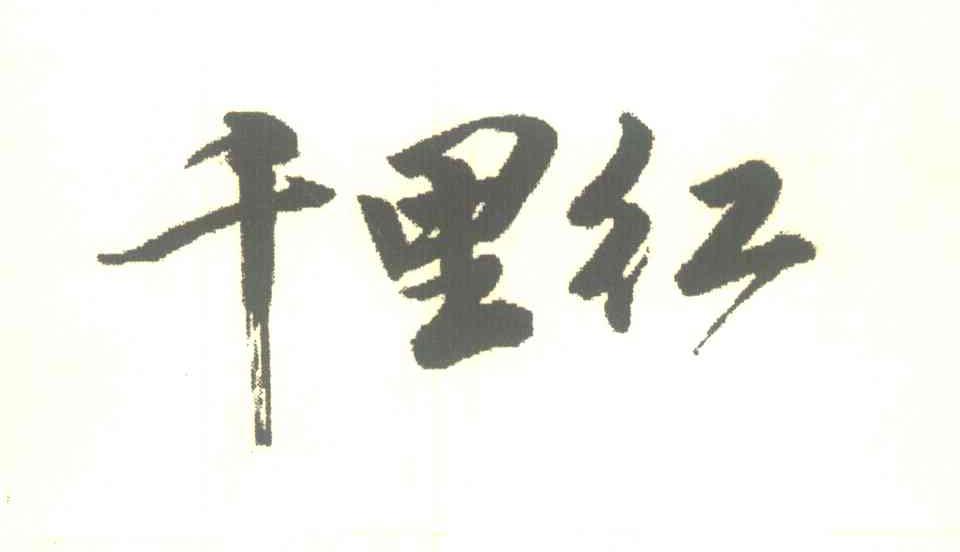 千里红